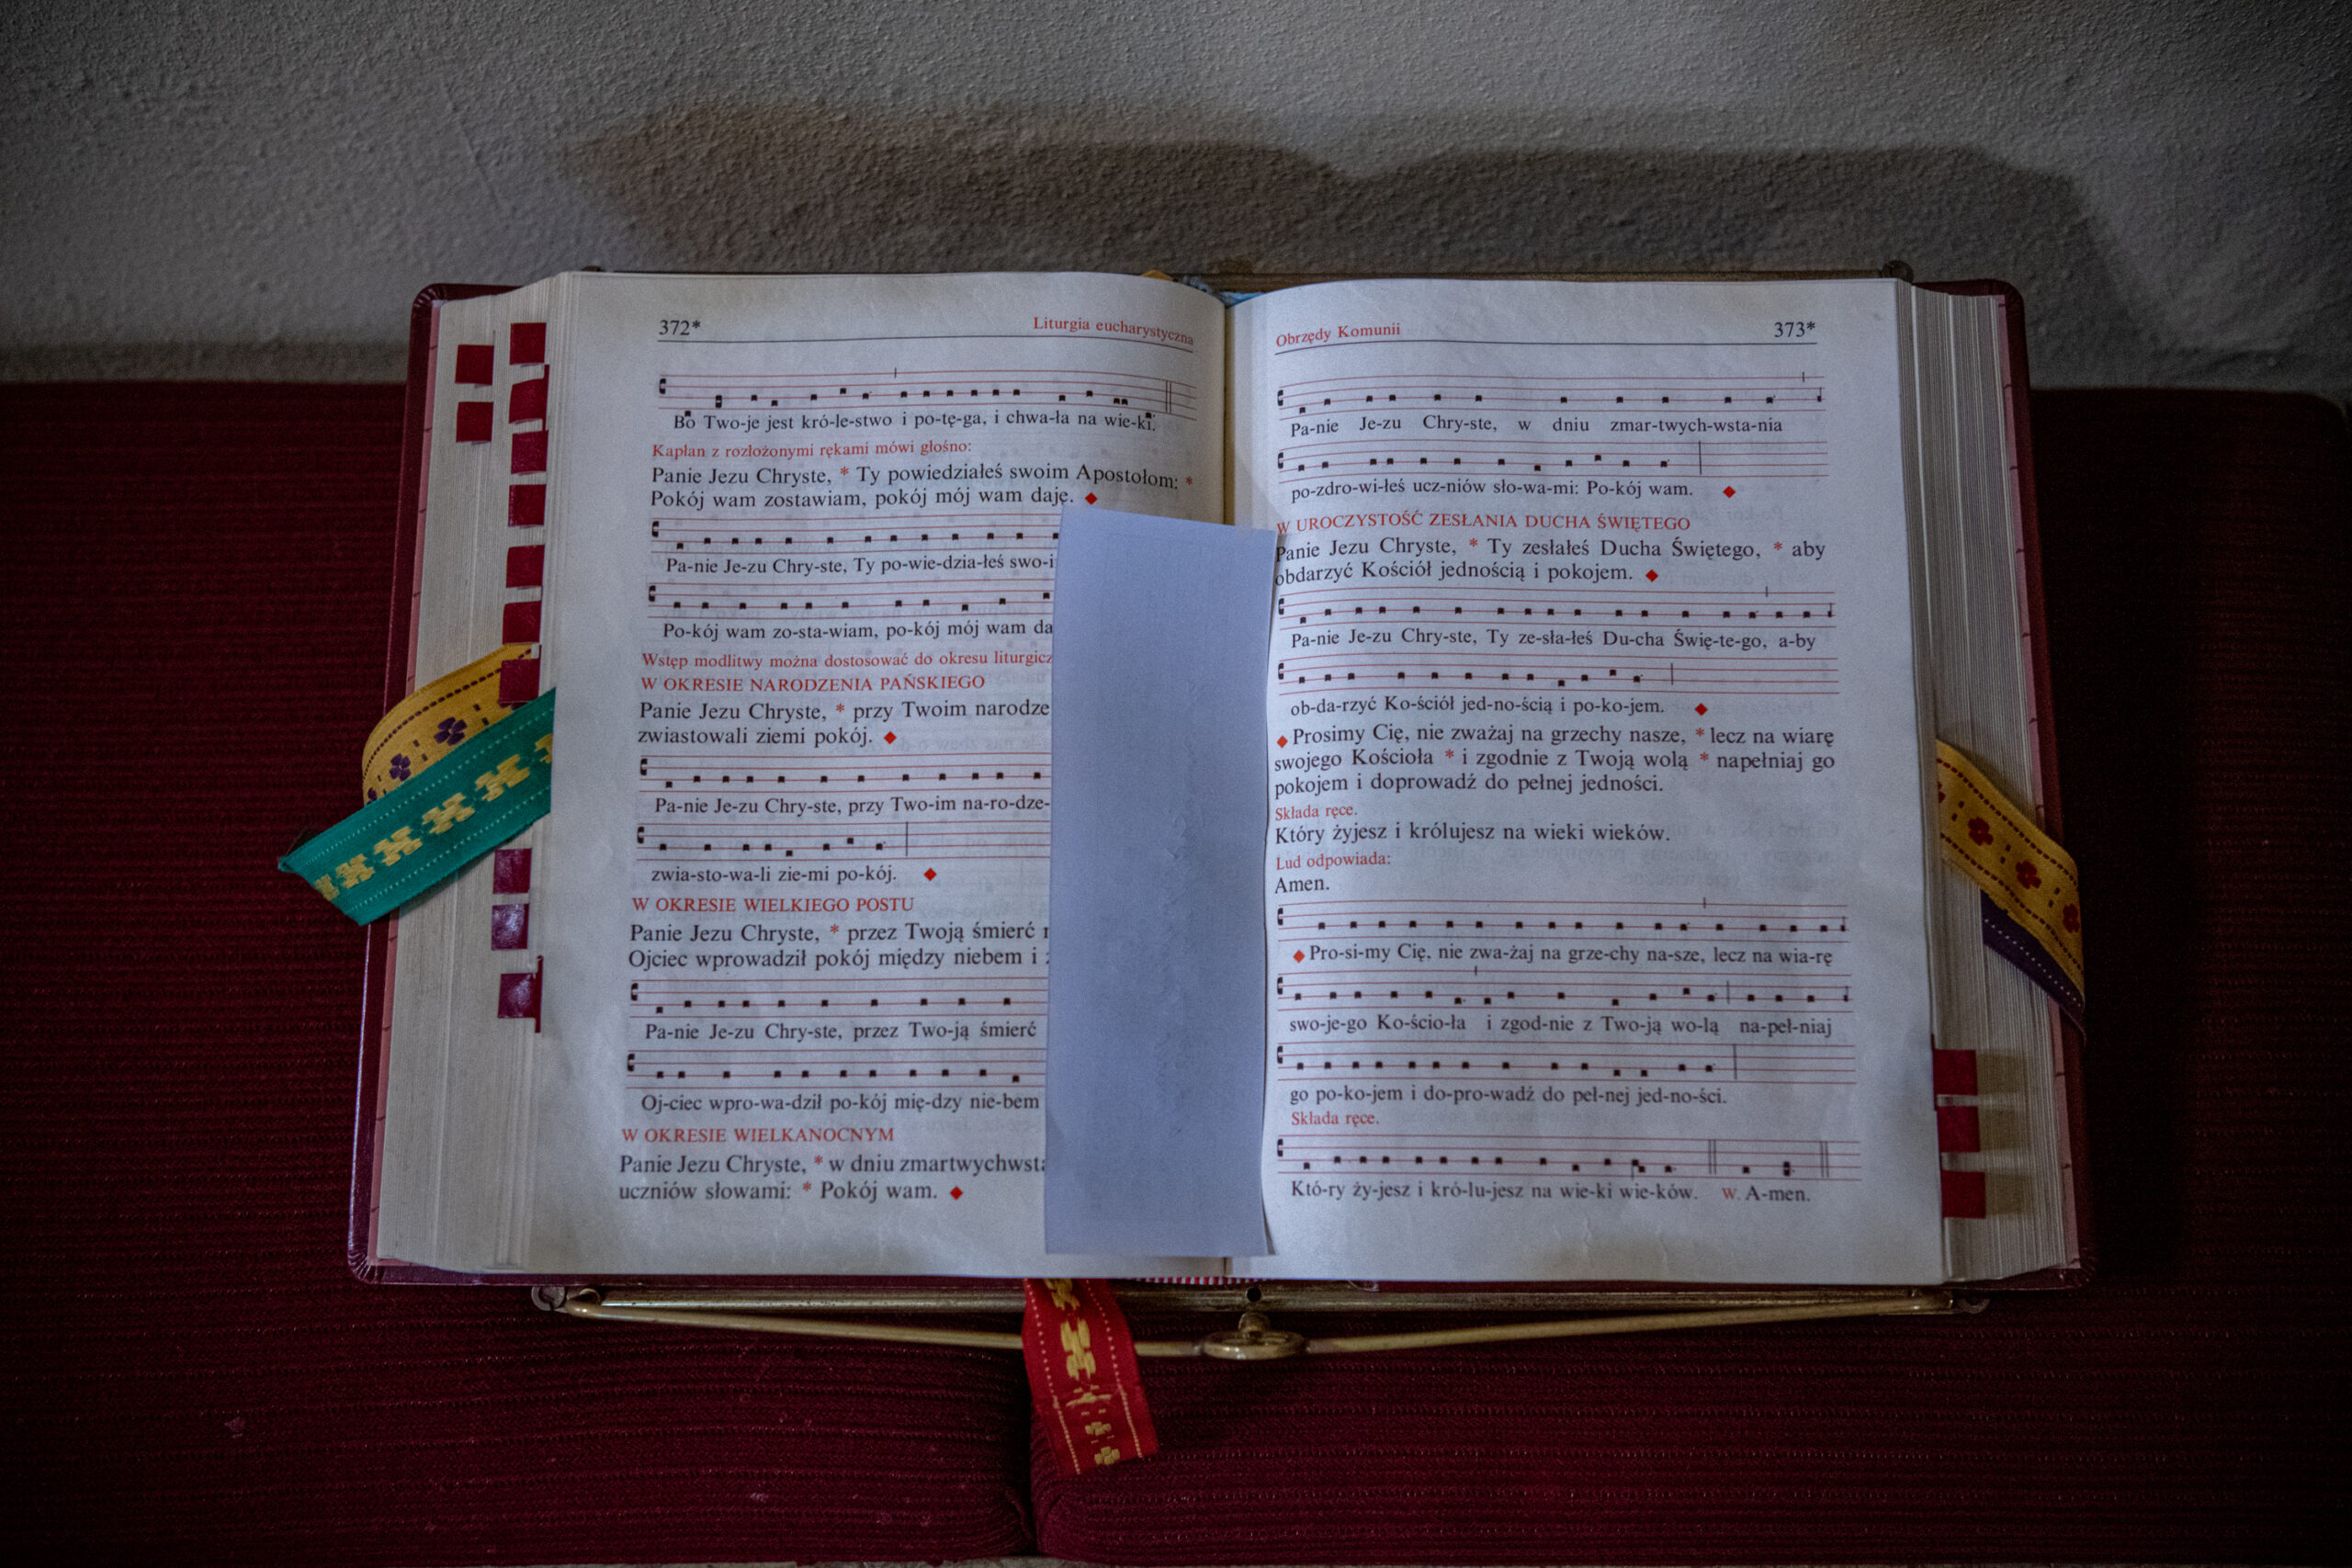 372*
Liturgia eucharystyczna
Bo Two-je jest kró-le-stwo i po-tę-ga, i chwa-ła na wie-ki.
Kapłan z rozłożonymi rękami mówi głośno:
Panie Jezu Chryste, * Ty powiedziałeś swoim Apostołom: *
Pokój wam zostawiam, pokój mój wam daję. ◆
Pa-nie Je-zu Chry-ste, Ty po-wie-dzia-łeś
Po-kój wam zo-sta-wiam, po-kój mój wam
Wstęp modlitwy można dostosować do okresu
W OKRESIE NARODZENIA PAŃSKIEGO
Panie Jezu Chryste, * przy Twoim
zwiastowali ziemi pokój. ◆
Pa-nie Je-zu Chry-ste, przy Two-im na-ro-dze-
zwia-sto-wa-li zie-mi po-kój. ◆
W OKRESIE WIELKIEGO POSTU
Panie Jezu Chryste, * przez Twoją śmierć
Ojciec wprowadził pokój między niebem i
Pa-nie Je-zu Chry-ste, przez Two-ją śmierć
Oj-ciec wpro-wa-dził po-kój mię-dzy nie-bem
W OKRESIE WIELKANOCNYM
Panie Jezu Chryste, * w dniu
uczniów słowami: * Pokój wam. ◆
Obrzędy Komunii
373*
Pa-nie Je-zu Chry-ste, w dniu zmar-twych-wsta-nia
po-zdro-wi-łeś ucz-niów sło-wa-mi: Po-kój wam. ◆
W UROCZYSTOŚĆ ZESŁANIA DUCHA ŚWIĘTEGO
Panie Jezu Chryste, * Ty zesłałeś Ducha Świętego, * aby
obdarzyć Kościół jednością i pokojem. ◆
Pa-nie Je-zu Chry-ste, Ty ze-sła-łeś Du-cha Świę-te-go, a-by
ob-da-rzyć Ko-ściół jed-no-ścią i po-ko-jem. ◆
◆ Prosimy Cię, nie zważaj na grzechy nasze, * lecz na wiarę
swojego Kościoła * i zgodnie z Twoją wolą * napełniaj go
pokojem i doprowadź do pełnej jedności.
Składa ręce.
Który żyjesz i królujesz na wieki wieków.
Lud odpowiada:
Amen.
◆ Pro-si-my Cię, nie zwa-żaj na grze-chy na-sze, lecz na wia-rę
swo-je-go Ko-ścio-ła i zgod-nie z Two-ją wo-lą na-peł-niaj
go po-ko-jem i do-pro-wadź do peł-nej jed-no-ści.
Składa ręce.
Któ-ry ży-jesz i kró-lu-jesz na wie-ki wie-ków. W. A-men.